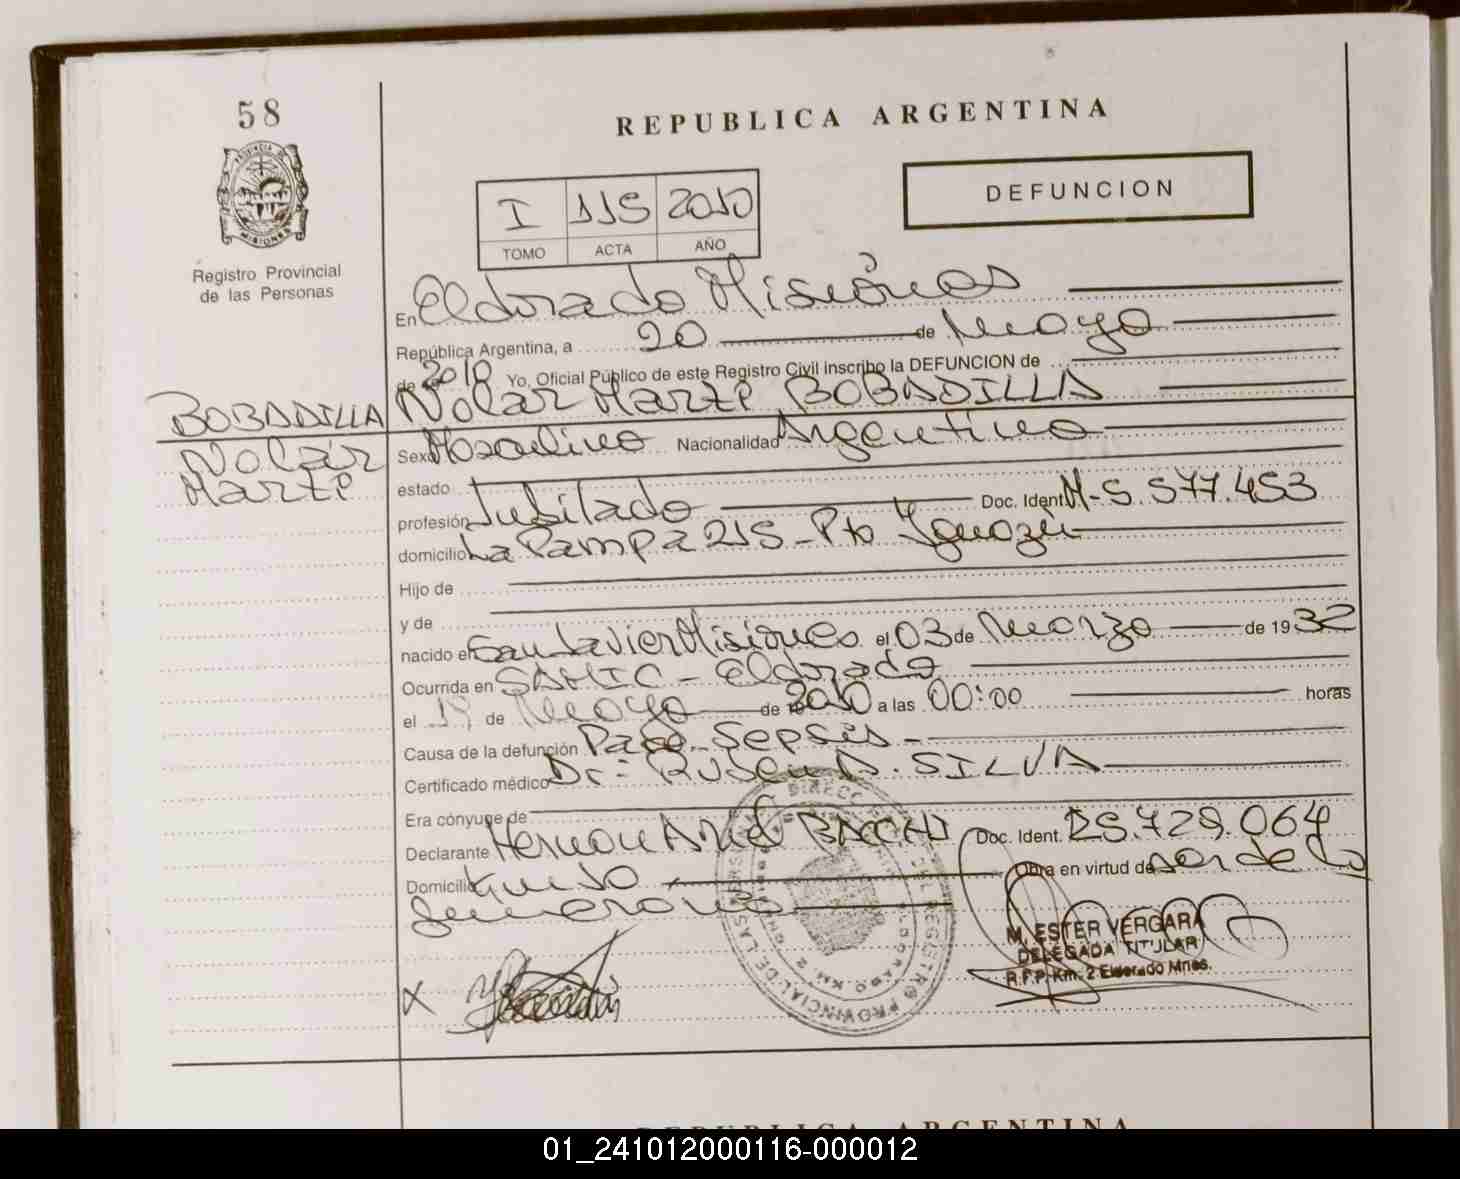 58
REPUBLICA ARGENTINA
DEFUNCION
I 115 2010
TOMO ACTA AÑO
PROVINCIA DE
MISIONES
Registro Provincial
de las Personas
En Eldorado Misiones
República Argentina, a 20 de Mayo
de 2010 Yo, Oficial Público de este Registro Civil inscribo la DEFUNCION de
BOBADILLA
BOBADILLA
Sexo Masculino Nacionalidad Argentino
estado
profesión Jubilado Doc. Ident. M-5.577.453
domicilio La Pampa 215 - Pto Iguazú
Hijo de
y de
nacido en San Javier Misiones el 03 de Marzo de 1932
Ocurrida en SAMIC - Eldorado
el 19 de Mayo de 2010 a las 00:00 horas
Causa de la defunción Paro - Sepsis -
Certificado médico Dr: Ruben A. SILVA
Era cónyuge de
Declarante Hernan Ariel BACCHI Doc. Ident. 25.729.064
Domicilio Obra en virtud de ser de la
funeraria
X
M. ESTER VERGARA
DELEGADA TITULAR
R.P.P. Km. 2 Eldorado Mnes.
REPUBLICA ARGENTINA
01_241012000116-000012